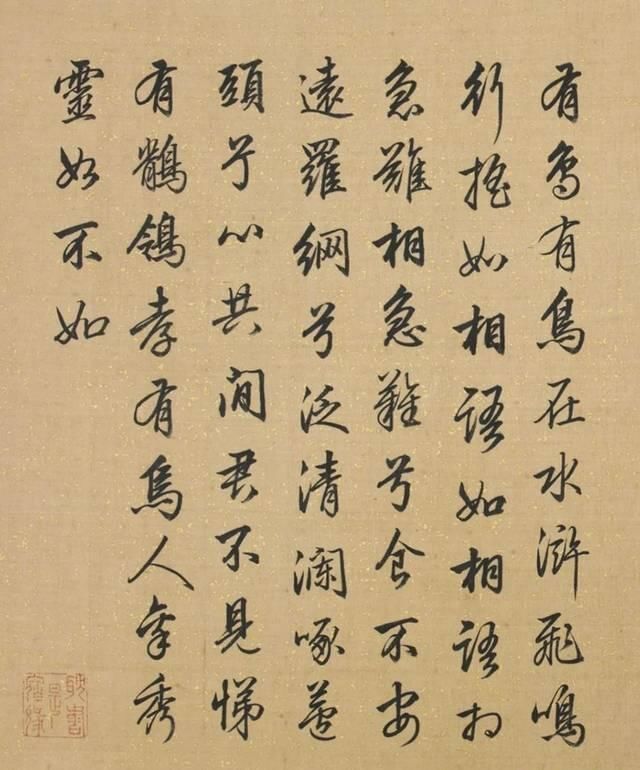 有鳥有鳥在水滸飛鳴
行搖如相語如相語相
急難相急難兮食不安
遠羅網兮泛清瀾啄蘆
頭兮心共閒君不見悌
有鶺鴒孝有烏人秀
靈不如